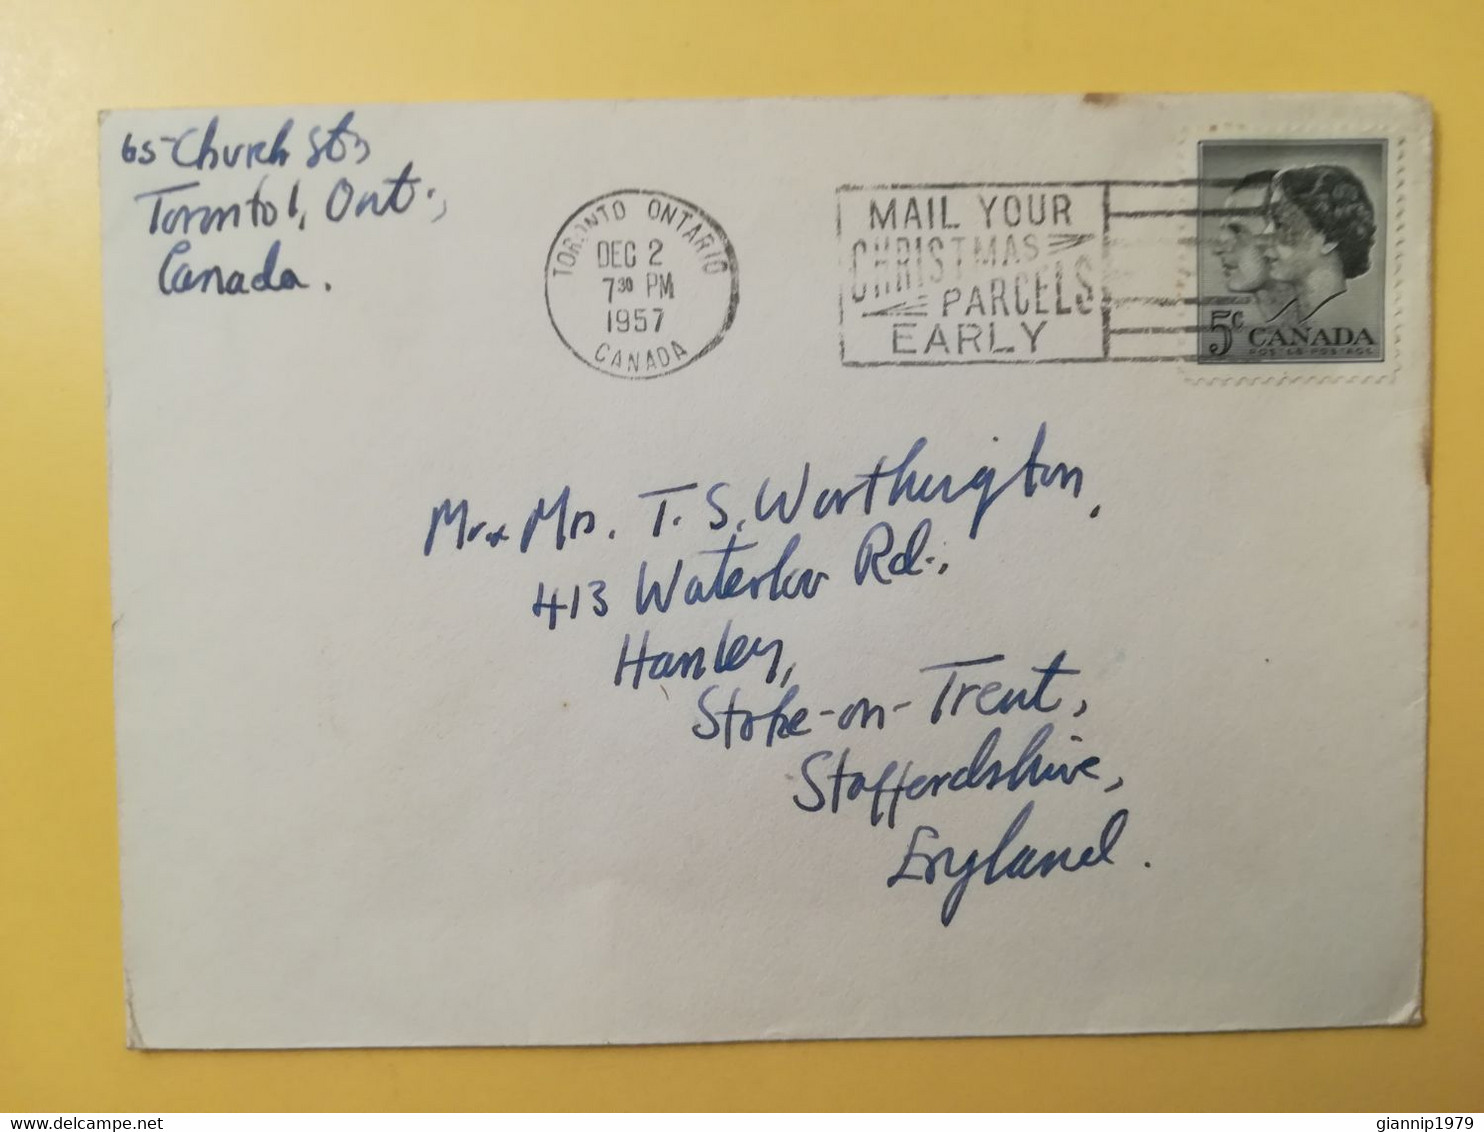 65 Church St,
Toronto 1, Ont.,
Canada.
TORONTO ONTARIO
DEC 2
7 30 PM
1957
CANADA
MAIL YOUR
CHRISTMAS
PARCELS
EARLY
5c CANADA
POSTES-POSTAGE
Mr. & Mrs. T. S. Worthington,
413 Waterloo Rd.,
Hanley,
Stoke-on-Trent,
Staffordshire,
England.
delcampe.net
giannip1979